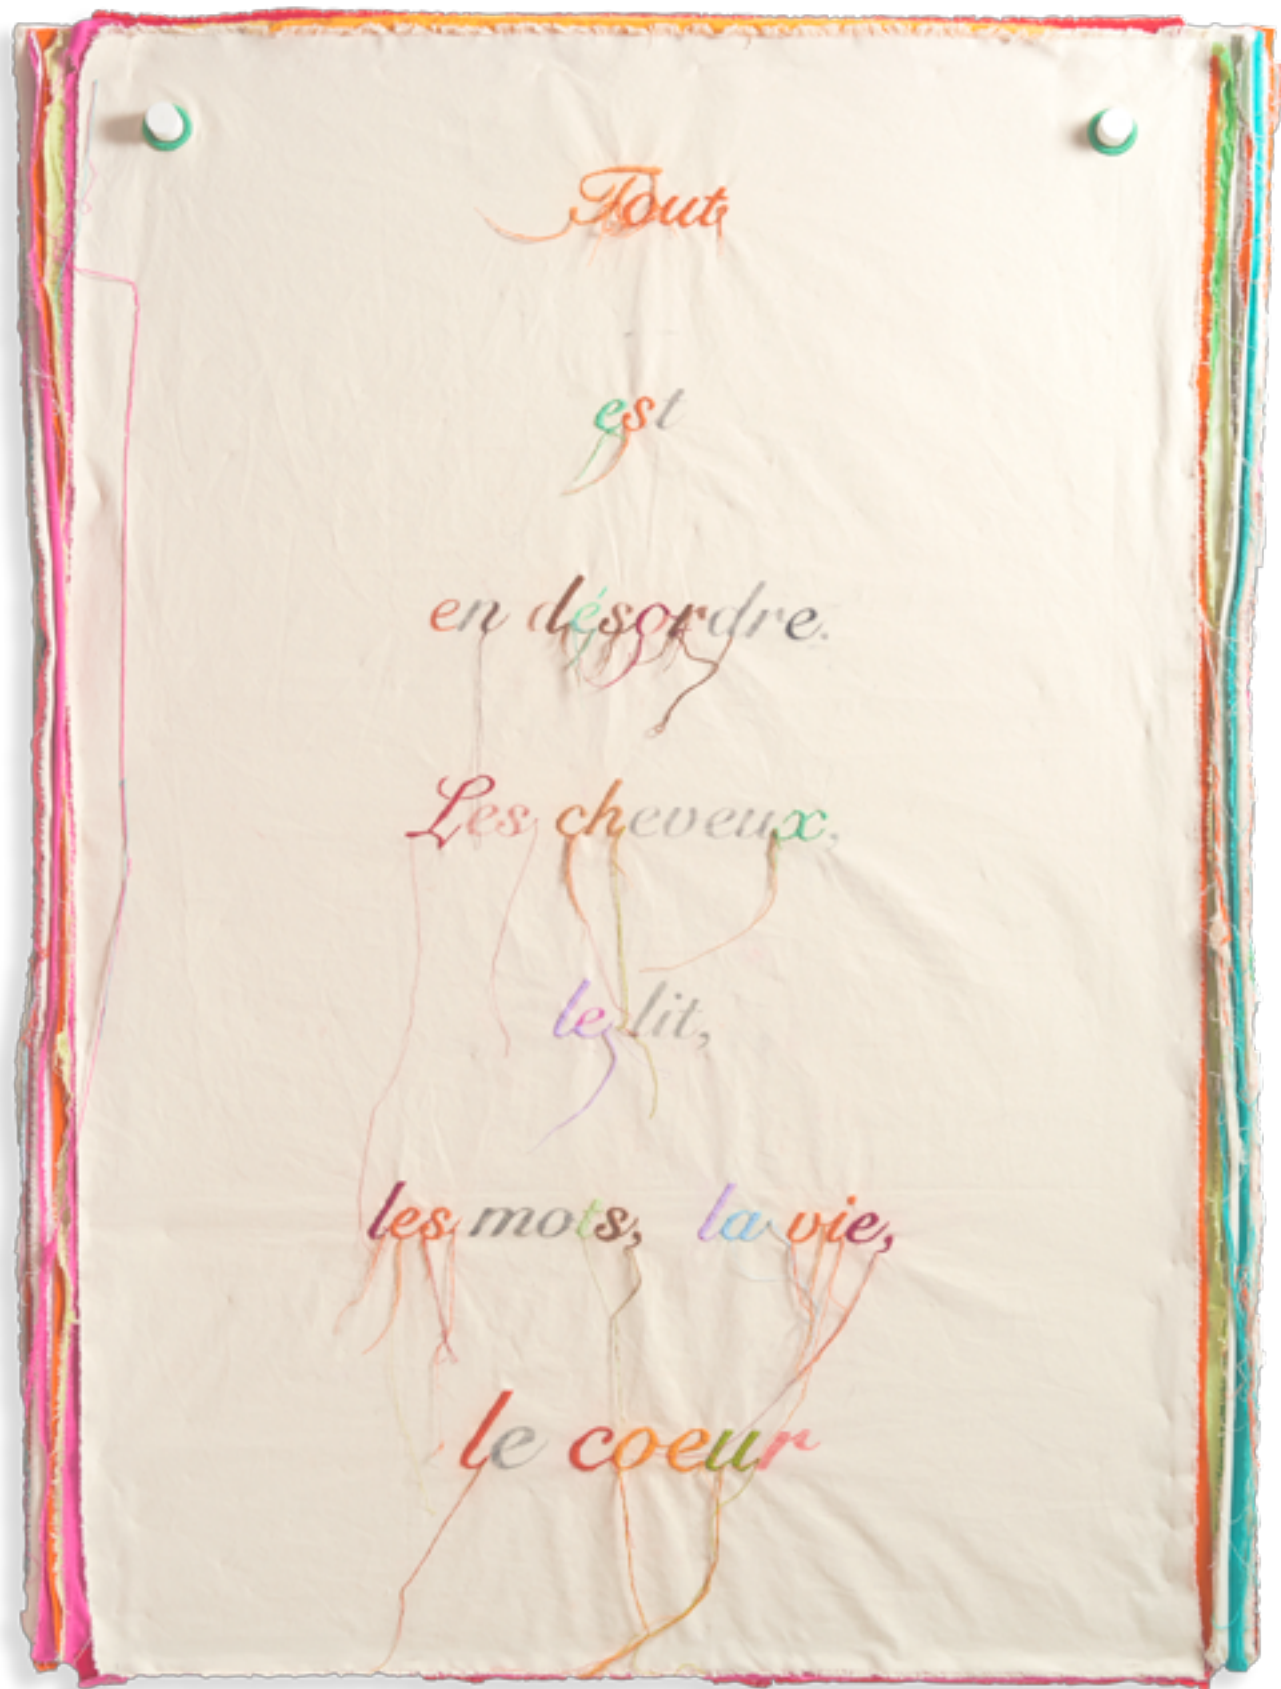 Tout
est
en désordre.
Les cheveux,
le lit,
les mots, la vie,
le coeur